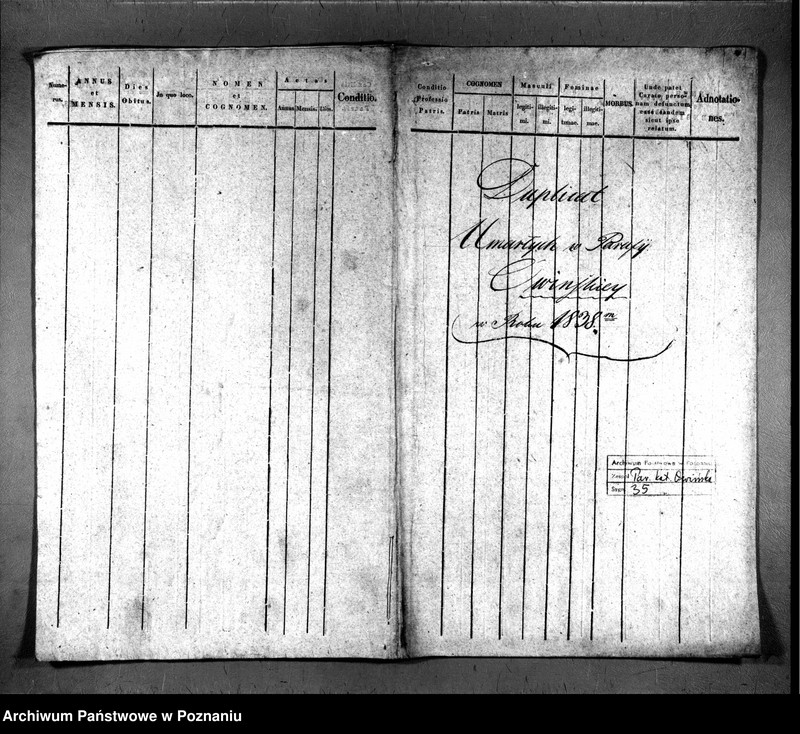 Nume-
rus.
ANNUS
et
MENSIS.
Dies
Obitus.
In quo loco.
NOMEN
et
COGNOMEN.
Aetas
Annus.
Mensis.
Dies.
Conditio.
Conditio
Professio
Patris.
COGNOMEN
Patris
Matris
Masculi
legiti-
mi.
illegiti-
mi.
Feminae
legi-
timae.
illegiti-
mae.
MORBUS.
Unde patet
Curato perso-
nam defunctam
esse eandem
sicut ipse
relatum.
Adnotatio-
nes.
Duplicat
Umarłych w Parafij
Owinskiey
w Roku 1838.m
Archiwum Państwowe w Poznaniu
Zespół Par. kat. Owińska
Sygn. 35
Archiwum Państwowe w Poznaniu